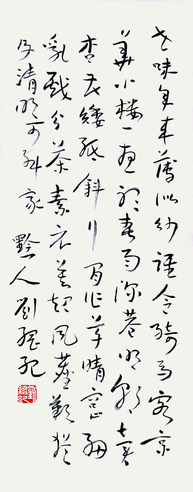 世味年来薄似纱誰令騎馬客京
華小楼一夜聽春雨深巷明朝賣
杏花矮紙斜行閒作草晴窗細
乳戲分茶素衣莫起風塵歎猶
及清明可到家 黔人劉